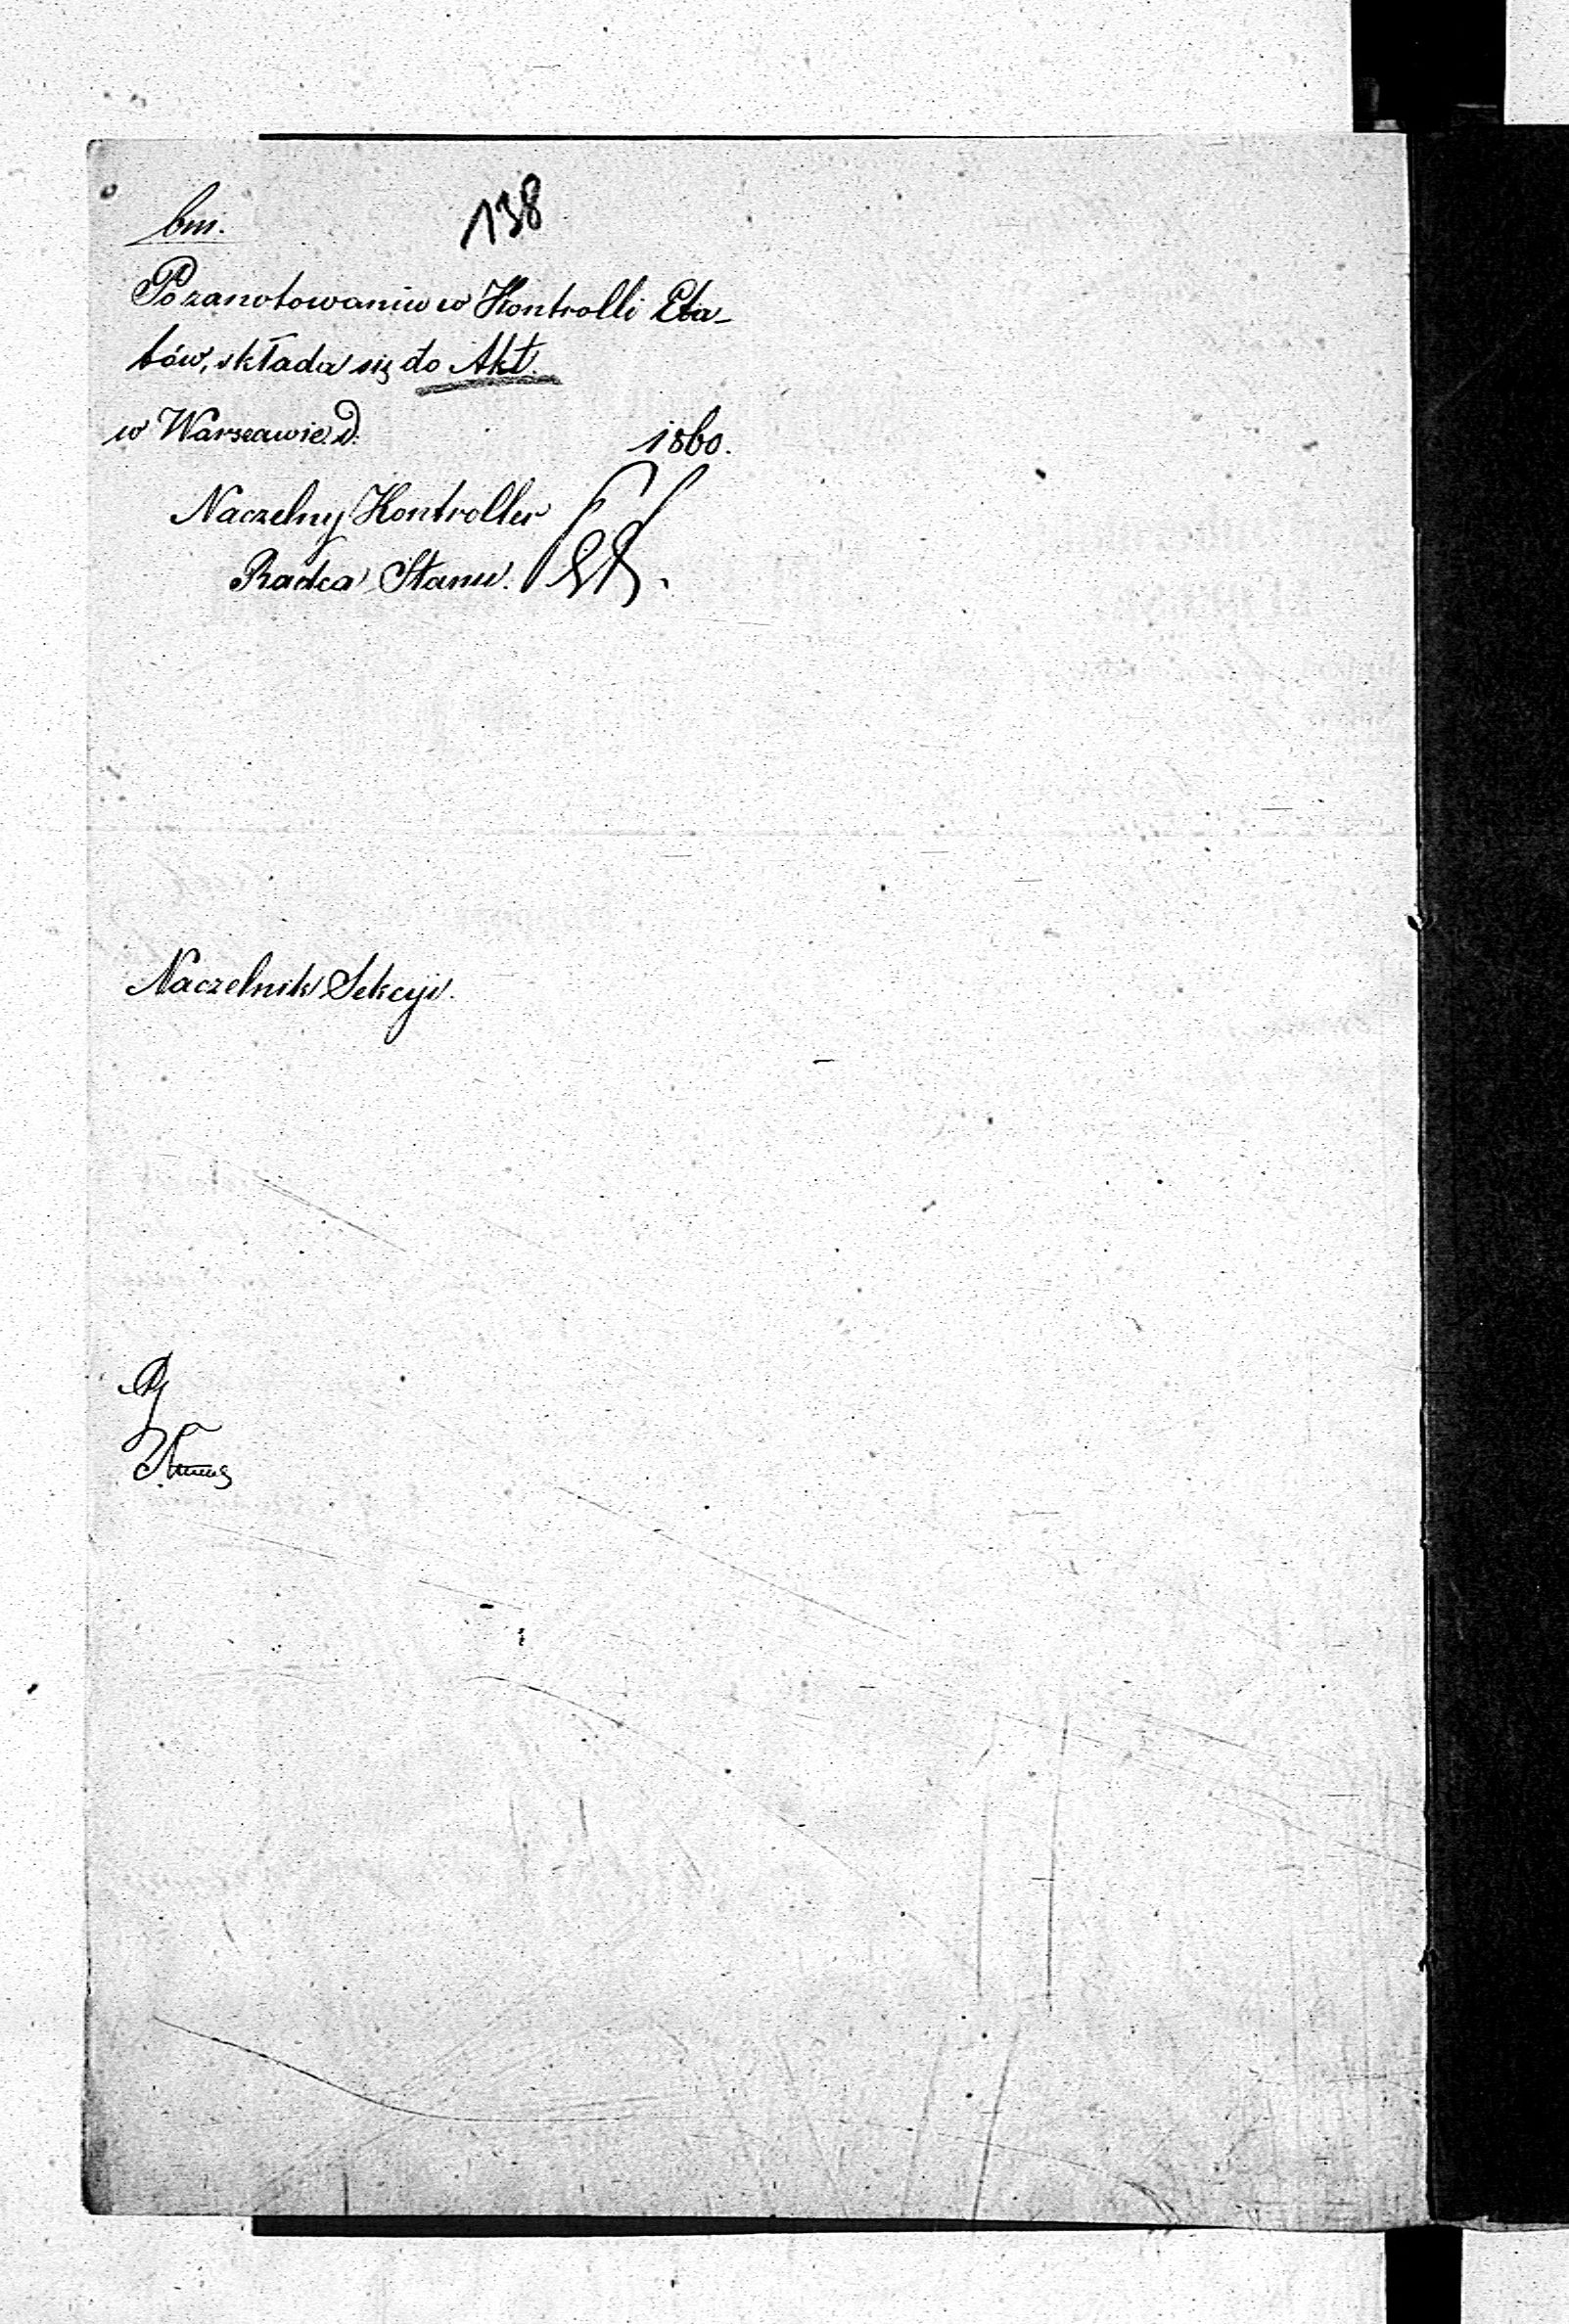 bm. 138
Po zanotowaniu w Kontrolli Eta-
tów, składa się do Akt.
w Warszawie d. 1860.
Naczelny Kontroller
Radca Stanu.
Naczelnik Sekcyi.